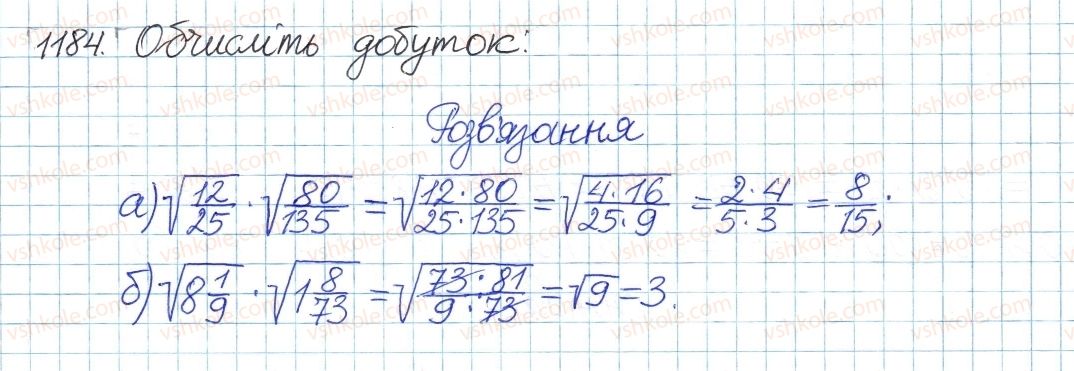 1184. Обчисліть добуток:
Розв'язання
а) √(12/25) · √(80/135) = √((12·80)/(25·135)) = √((4·16)/(25·9)) = (2·4)/(5·3) = 8/15;
б) √(8 1/9) · √(1 8/73) = √((73·81)/(9·73)) = √9 = 3.